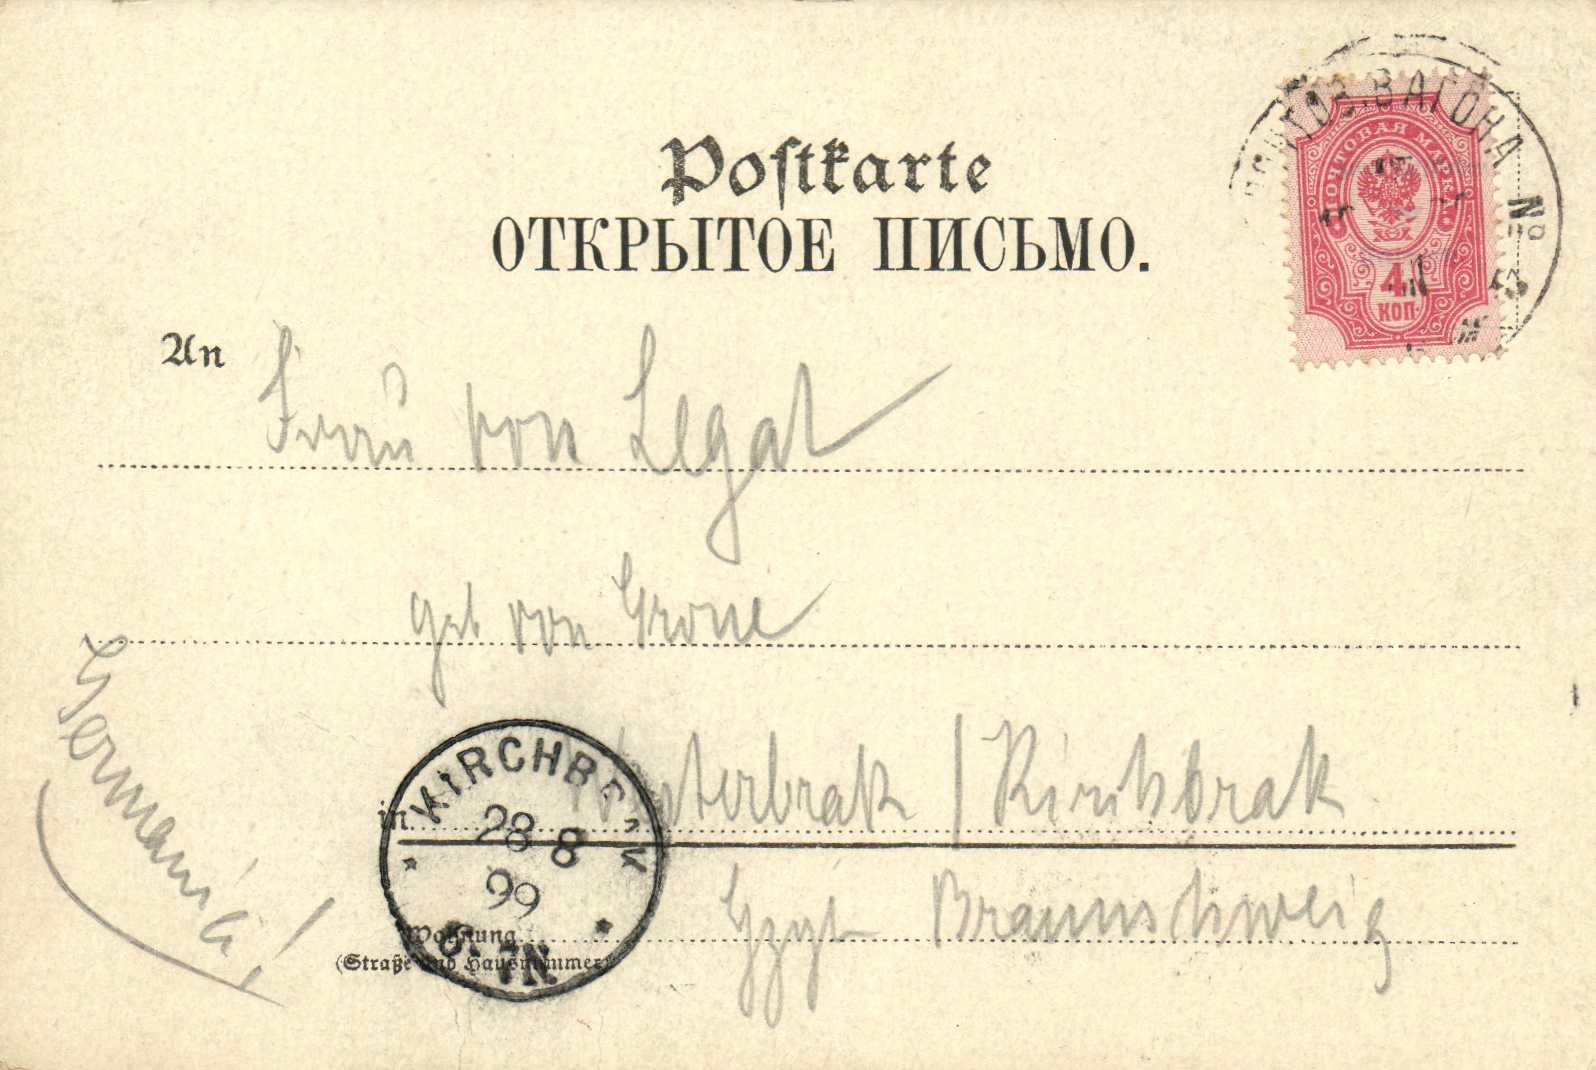 Postkarte
ОТКРЫТОЕ ПИСЬМО.
ПОЧТОВ. ВАГОНА №
ПОЧТОВАЯ МАРКА
4
КОП.
An Frau von Legat
geb von Grone
in Westerbrak / Kirchbrak
KIRCHB
28 8
99
7N.
Wohnung
(Straße und Hausnummer)
Hzgt Braunschweig
Germania!